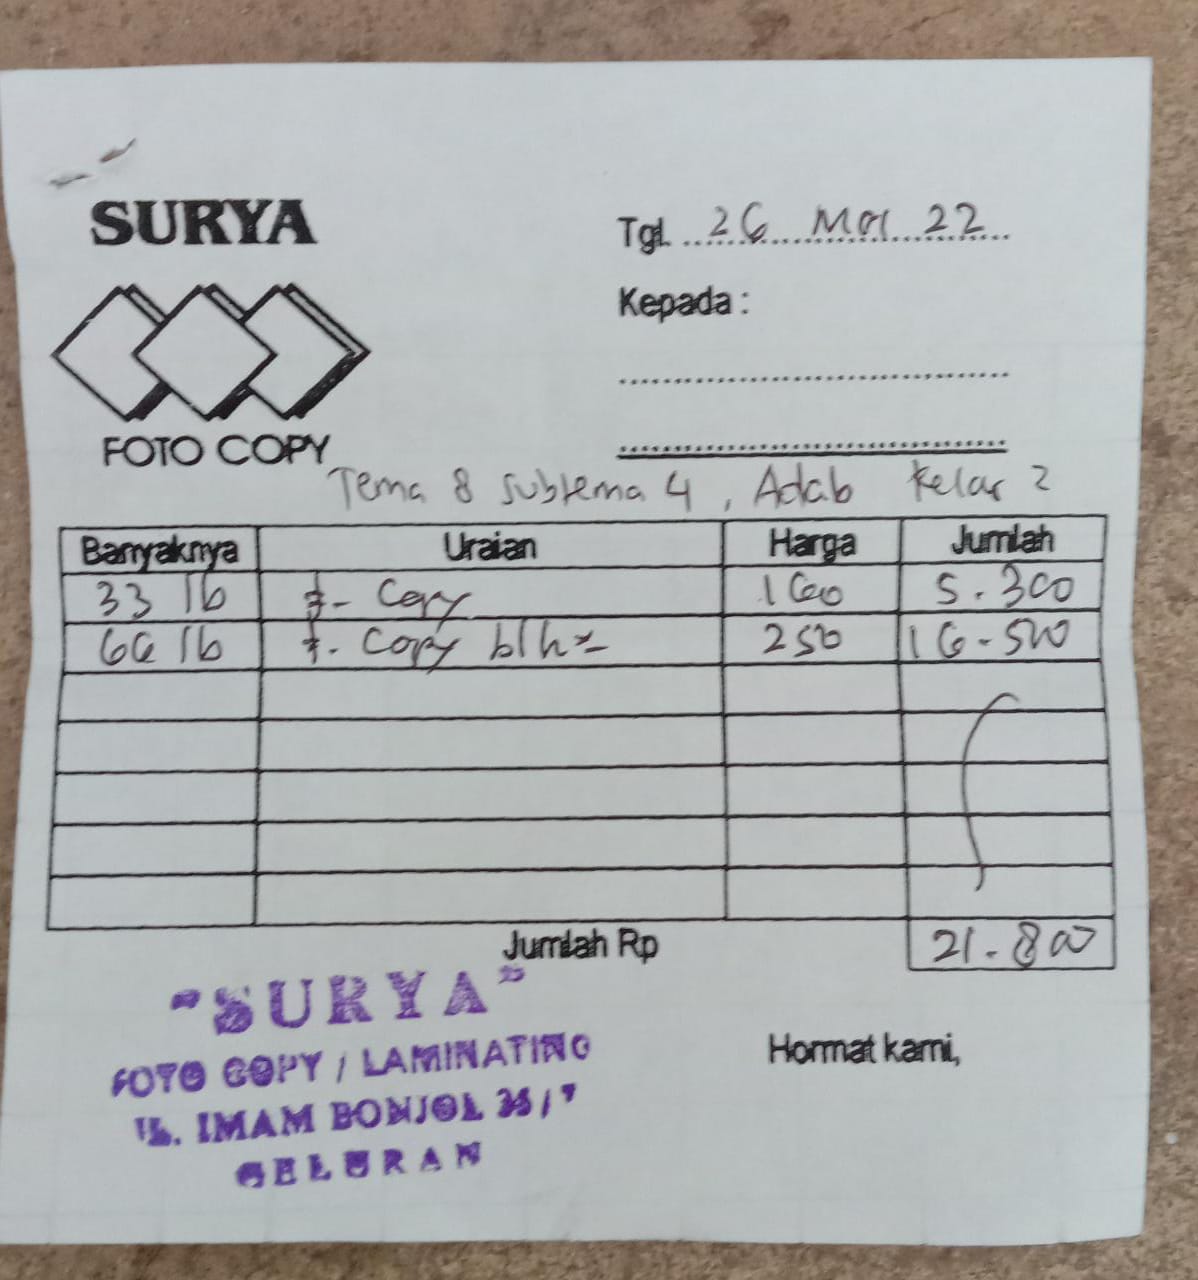 SURYA
FOTO COPY
Tgl. 26 Mei 22
Kepada :
Tema 8 subtema 4, Adab Kelas 2
Banyaknya Uraian Harga Jumlah
33 lb f- Copy 160 5.300
66 lb f. Copy 250 16.500
Jumlah Rp 21.800
"SURYA"
FOTO COPY / LAMINATING
JL. IMAM BONJOL
GELURAN
Hormat kami,